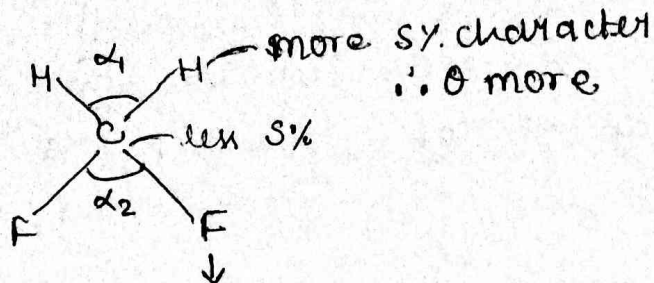 H α1 H — more s% character
∴ θ more
C — less s%
α2
F F
↓